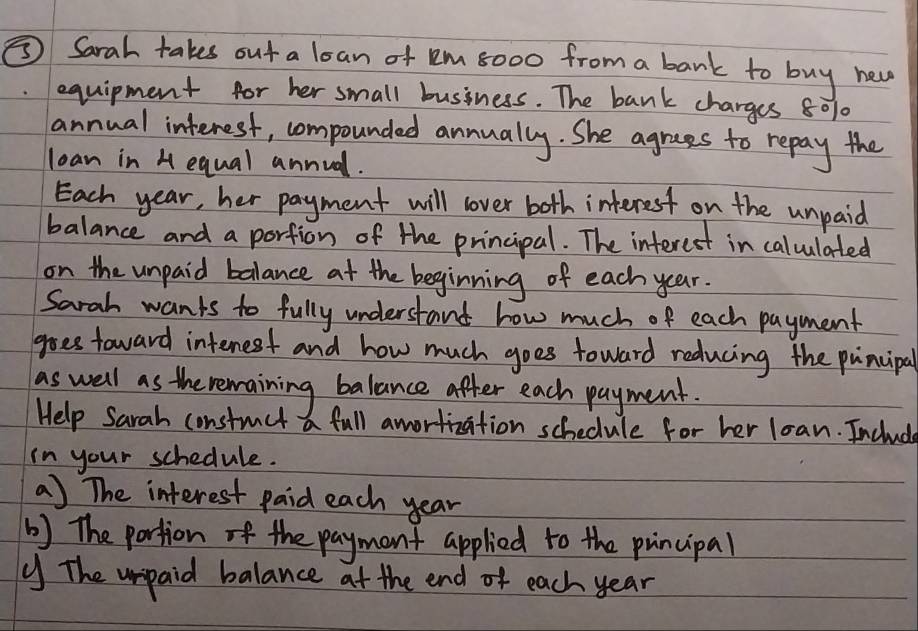 ③ Sarah takes out a loan of RM 8000 from a bank to buy new
equipment for her small business. The bank charges 8%
annual interest, compounded annually. She agrees to repay the
loan in 4 equal annual.
Each year, her payment will cover both interest on the unpaid
balance and a portion of the principal. The interest in calculated
on the unpaid balance at the beginning of each year.
Sarah wants to fully understand how much of each payment
goes toward interest and how much goes toward reducing the principal
as well as the remaining balance after each payment.
Help Sarah construct a full amortization schedule for her loan. Include
in your schedule.
a) The interest paid each year
b) The portion of the payment applied to the principal
c) The unpaid balance at the end of each year